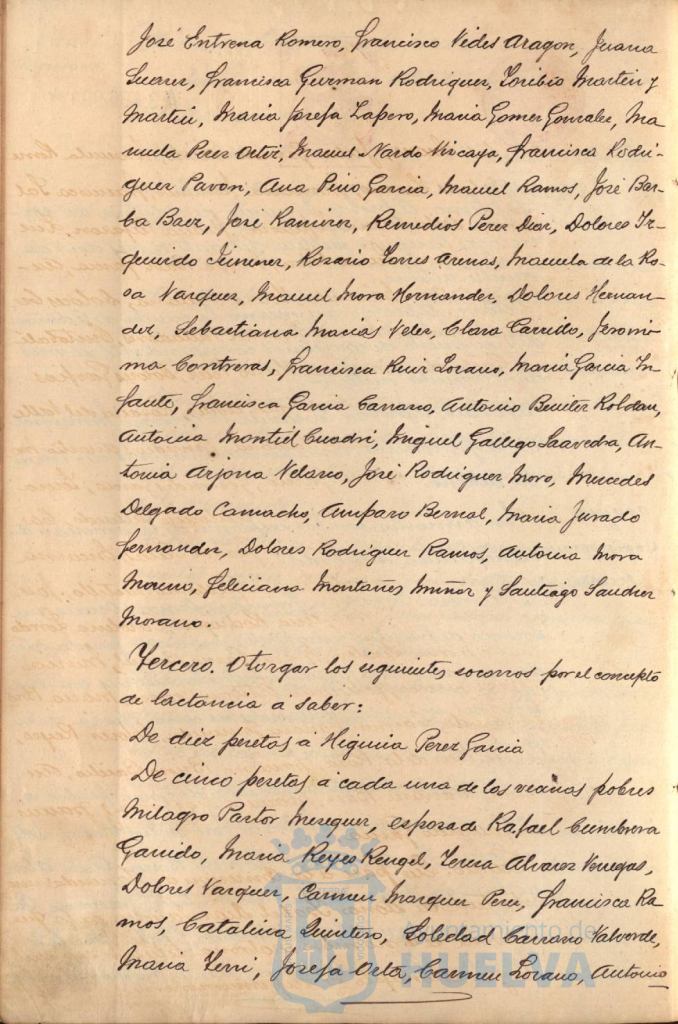 José Entrena Romero, Francisco Vides Aragon, Juana
Suarez, Francisca Guzman Rodriguez, Toribio Martin y
Martin, Maria Josefa Zapero, Maria Gomez Gonzalez, Ma-
nuela Perez Ortiz, Manuel Nardo Vizcaya, Francisca Rodri-
guez Pavon, Ana Pino Garcia, Manuel Ramos, José Bar-
ba Baez, José Ramirez, Remedios Perez Diaz, Dolores Iz-
quierdo Jimenez, Rosario Torres Arenas, Manuela de la Ro-
sa Vazquez, Manuel Mora Hernandez, Dolores Hernan-
dez, Sebastiana Macias Velez, Clara Carrido, Jeroni-
ma Contreras, Francisca Ruiz Lozano, Maria Garcia In-
fante, Francisca Garcia Carrano, Antonio Benitez Roldan,
Antonia Montiel Cuadri, Miguel Gallego Saavedra, An-
tonia Arjona Velasco, José Rodriguez Moro, Mercedes
Delgado Camacho, Amparo Bernal, Maria Jurado
Fernandez, Dolores Rodriguez Ramos, Antonia Mora
Moreno, Feliciana Montañes Muñoz y Santiago Sanchez
Morano.
Tercero. Otorgar los siguientes socorros por el concepto
de lactancia á saber:
De diez pesetas á Higinia Perez Garcia
De cinco pesetas á cada una de las vecinas pobres
Milagro Pastor Meseguer, esposa de Rafael Cumbrera
Garrido, Maria Reyes Rengel, Teresa Alvarez Venegas,
Dolores Vazquez, Carmen Marquez Perez, Francisca Ra-
mos, Catalina Quintero, Soledad Carrano Valverde,
Maria Terri, Josefa Orta, Carmen Lozano, Antonio
Ayuntamiento de
HUELVA